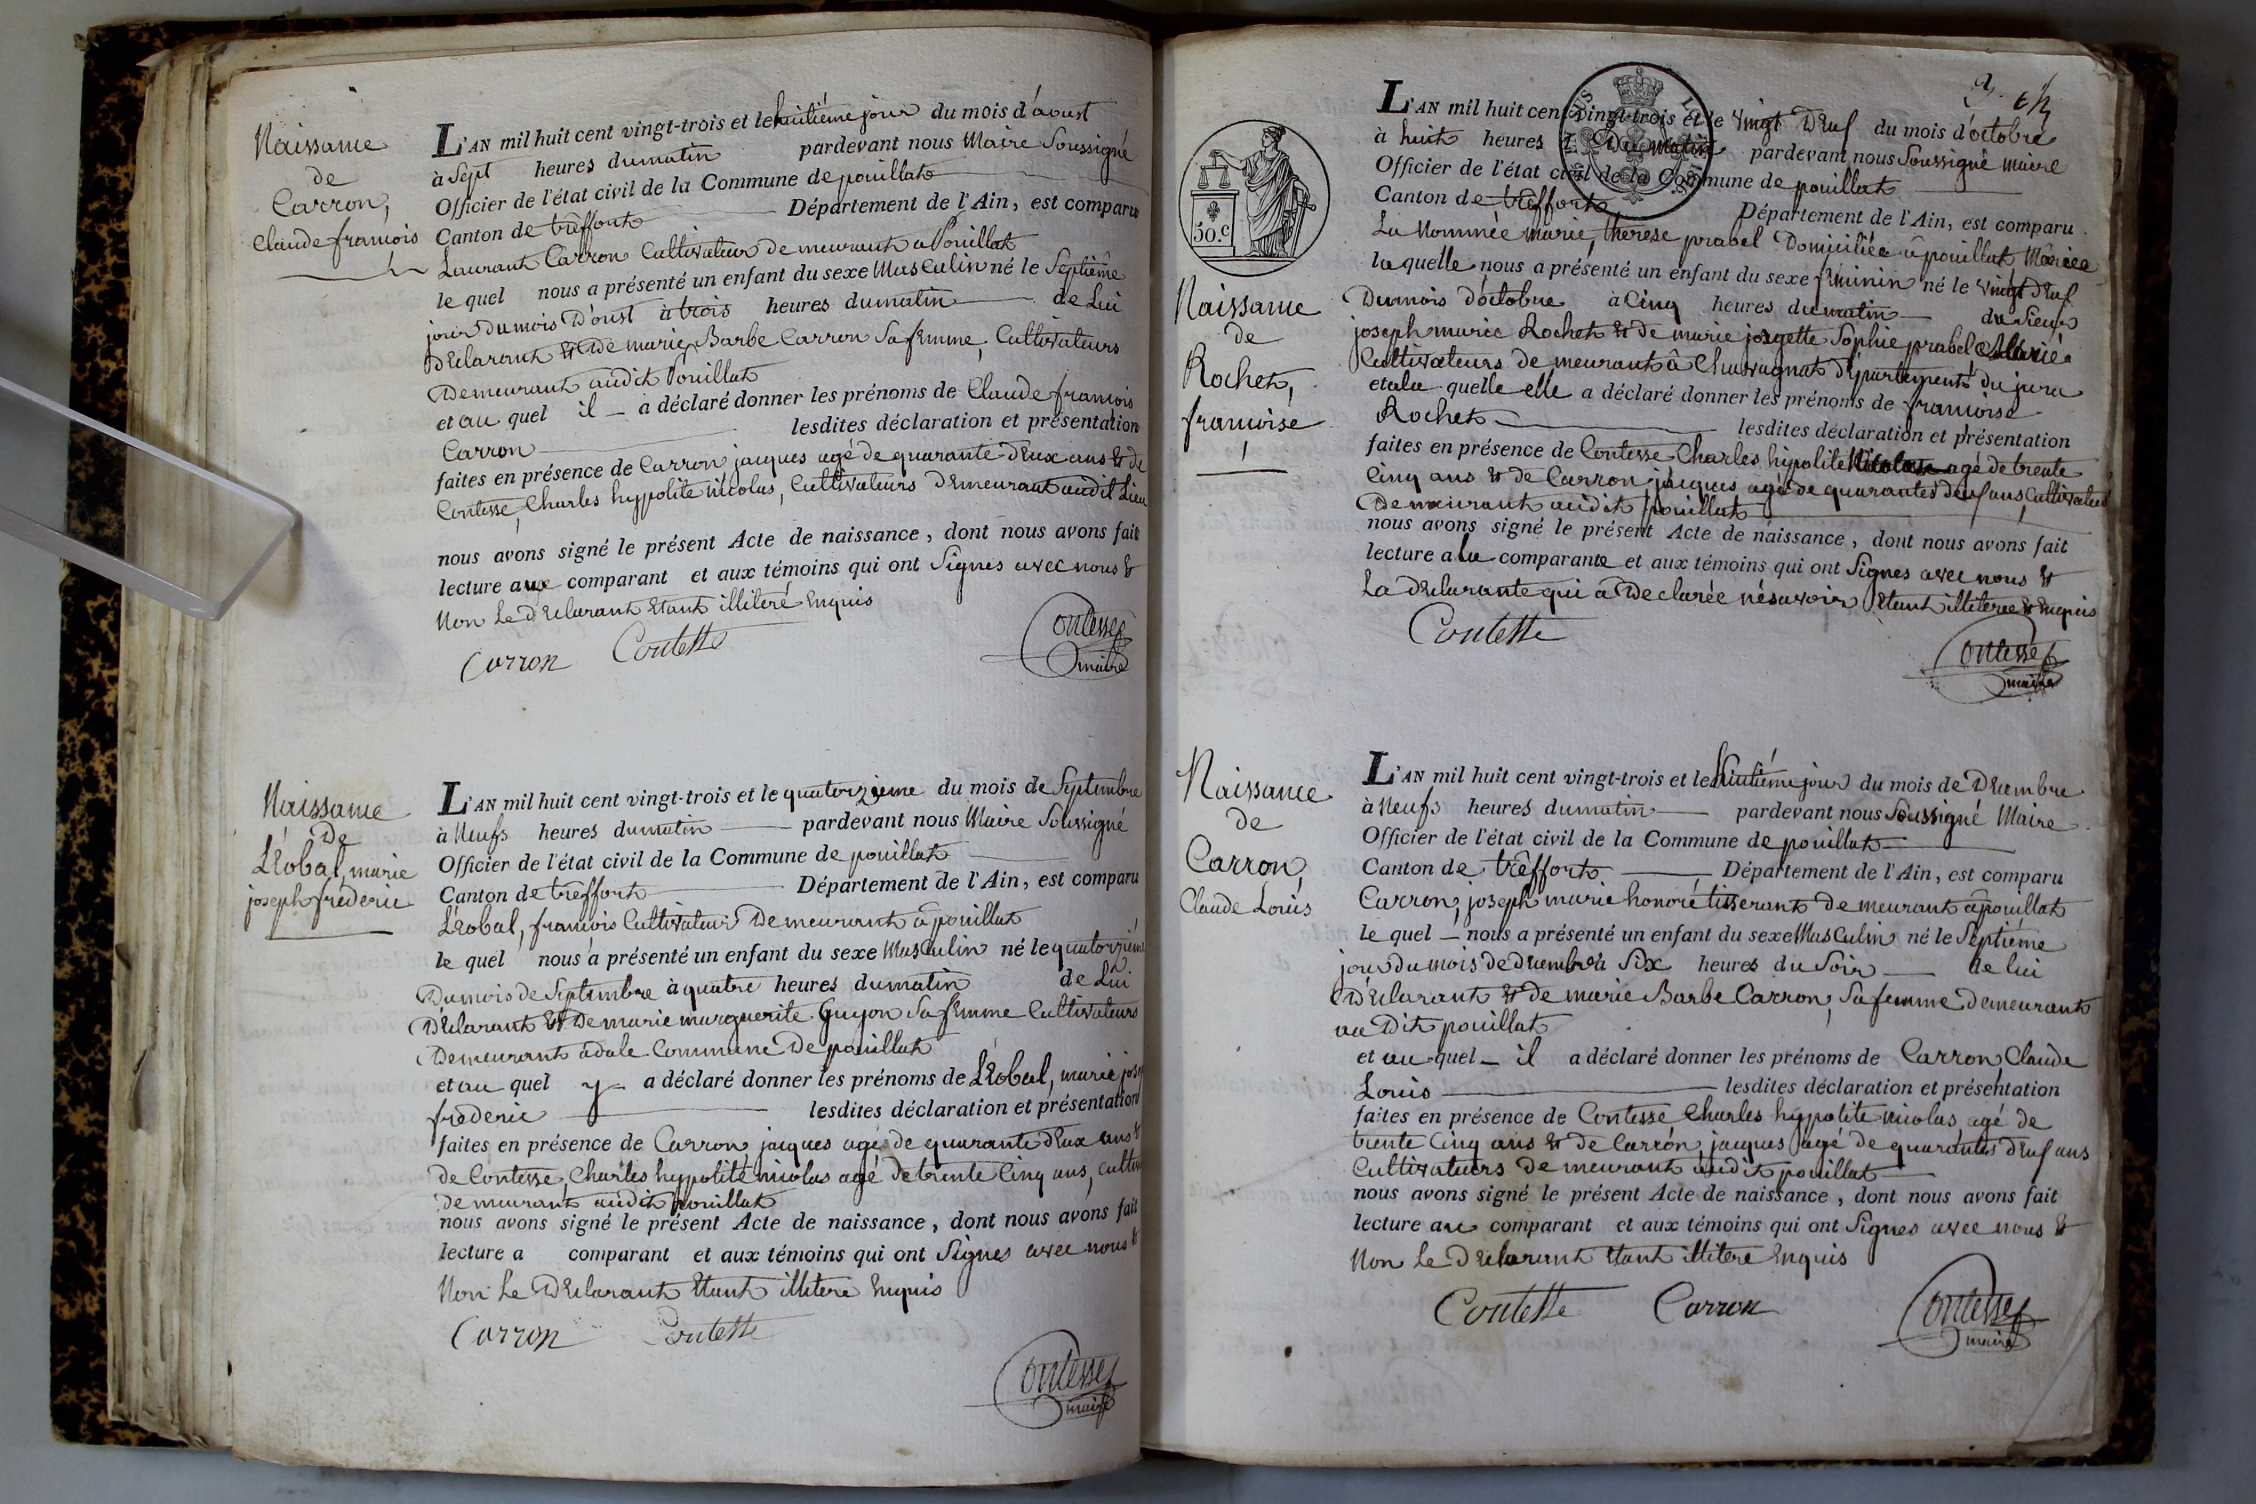 Naissance
de
Carron,
Claude francois
L'AN mil huit cent vingt-trois et le huitiême jour du mois d'aoust
à Sept heures du matin pardevant nous Maire Soussigné
Officier de l'état civil de la Commune de pouillat
Canton de trêffort Département de l'Ain, est comparu
Laurant Carron Cultivateur demeurant a Pouillat
le quel nous a présenté un enfant du sexe Masculin né le Septiême
jour du mois D'oust à trois heures du matin de Lui
Déclarant et de marie Barbe Carron Sa femme, Cultivateurs
Demeurant audit Pouillat
et au quel il a déclaré donner les prénoms de Claude francois
Carron lesdites déclaration et présentation
faites en présence de Carron jacques agé de quarante Deux ans et de
Contesse, Charles hyppolite nicolas, Cultivateurs Demeurant audit Lieu
nous avons signé le présent Acte de naissance, dont nous avons fait
lecture aux comparant et aux témoins qui ont Signes avec nous et
Non Le Déclarant Etant illiteré Enquis
Carron Contesse Contesse
maire
Naissance
De
Léobal, marie
joseph frederic
L'AN mil huit cent vingt-trois et le quatorzieme du mois de Septembre
à Neufs heures du matin pardevant nous Maire Soussigné
Officier de l'état civil de la Commune de pouillat
Canton de trêffort Département de l'Ain, est comparu
Léobal, francois Cultivateur Demeurant a pouillat
le quel nous a présenté un enfant du sexe Masculin né le quatorziéme
Du mois de Septembre à quatre heures du matin de Lui
Déclarant et De marie marguerite Guyon Sa femme Cultivateurs
Demeurant adale Commune De pouillat
et au quel y a déclaré donner les prénoms de Léobal, marie jose
frederic lesdites déclaration et présentation
faites en présence de Carron, jacques agé de quarante deux ans et
de Contesse, Charles hyppolite nicolas agé de trente Cinq ans, cultiv
demeurant audit pouillat
nous avons signé le présent Acte de naissance, dont nous avons fait
lecture a comparant et aux témoins qui ont Signes avec nous et
Non Le Déclarant Etant illitere Enquis
Carron Contesse
Contesse
maire
50.c
Naissance
de
Rochet,
francoise
L'AN mil huit cent vingt-trois et le vingt Deuf du mois d'octobre
à huit heures Du matin pardevant nous Soussigné maire
Officier de l'état civil de la Commune de pouillat
Canton de trêffort Département de l'Ain, est comparu
La Nommée marie, therese prabel Domiciliée a pouillat Mariée
la quelle nous a présenté un enfant du sexe feminin né le vingt Deuf
Du mois D'octobre à Cinq heures du matin du Sieur
joseph marie Rochet et de marie josgette Sophie prabel Mariée
Cultivateurs demeurant à Chavagnat Départements du jura
et a la quelle elle a déclaré donner les prénoms de francoise
Rochet lesdites déclaration et présentation
faites en présence de Contesse Charles hypolite agé de trente
Cinq ans et de Carron, jacques agé de quarantes deuf ans, Cultivateurs
Demeurant audit pouillat
nous avons signé le présent Acte de naissance, dont nous avons fait
lecture a la comparante et aux témoins qui ont Signes avec nous et
La Déclarante qui a Declarée nésavoir Etant illiteree et Enquis
Contesse
Contesse
maire
Naissance
de
Carron
Claude Louis
L'AN mil huit cent vingt-trois et le huitiéme jour du mois de Décembre
à Neufs heures du matin pardevant nous Soussigné Maire
Officier de l'état civil de la Commune de pouillat
Canton de trêffort Département de l'Ain, est comparu
Carron, joseph marie honoré tisserant demeurant a pouillat
le quel nous a présenté un enfant du sexe Masculin né le Septiéme
jour du mois de décembre à Six heures du Soir de lui
Déclarant et de marie Barbe Carron, Sa femme demeurant
au Dit pouillat
et au quel il a déclaré donner les prénoms de Carron, Claude
Louis lesdites déclaration et présentation
faites en présence de Contesse Charles hyppolite nicolas, agé de
trente Cinq ans et de Carron, jacques agé de quarantes deuf ans
Cultivateurs Demeurant audit pouillat
nous avons signé le présent Acte de naissance, dont nous avons fait
lecture au comparant et aux témoins qui ont Signes avec nous et
Non Le Déclarant Etant illitere Enquis
Contesse Carron Contesse
maire